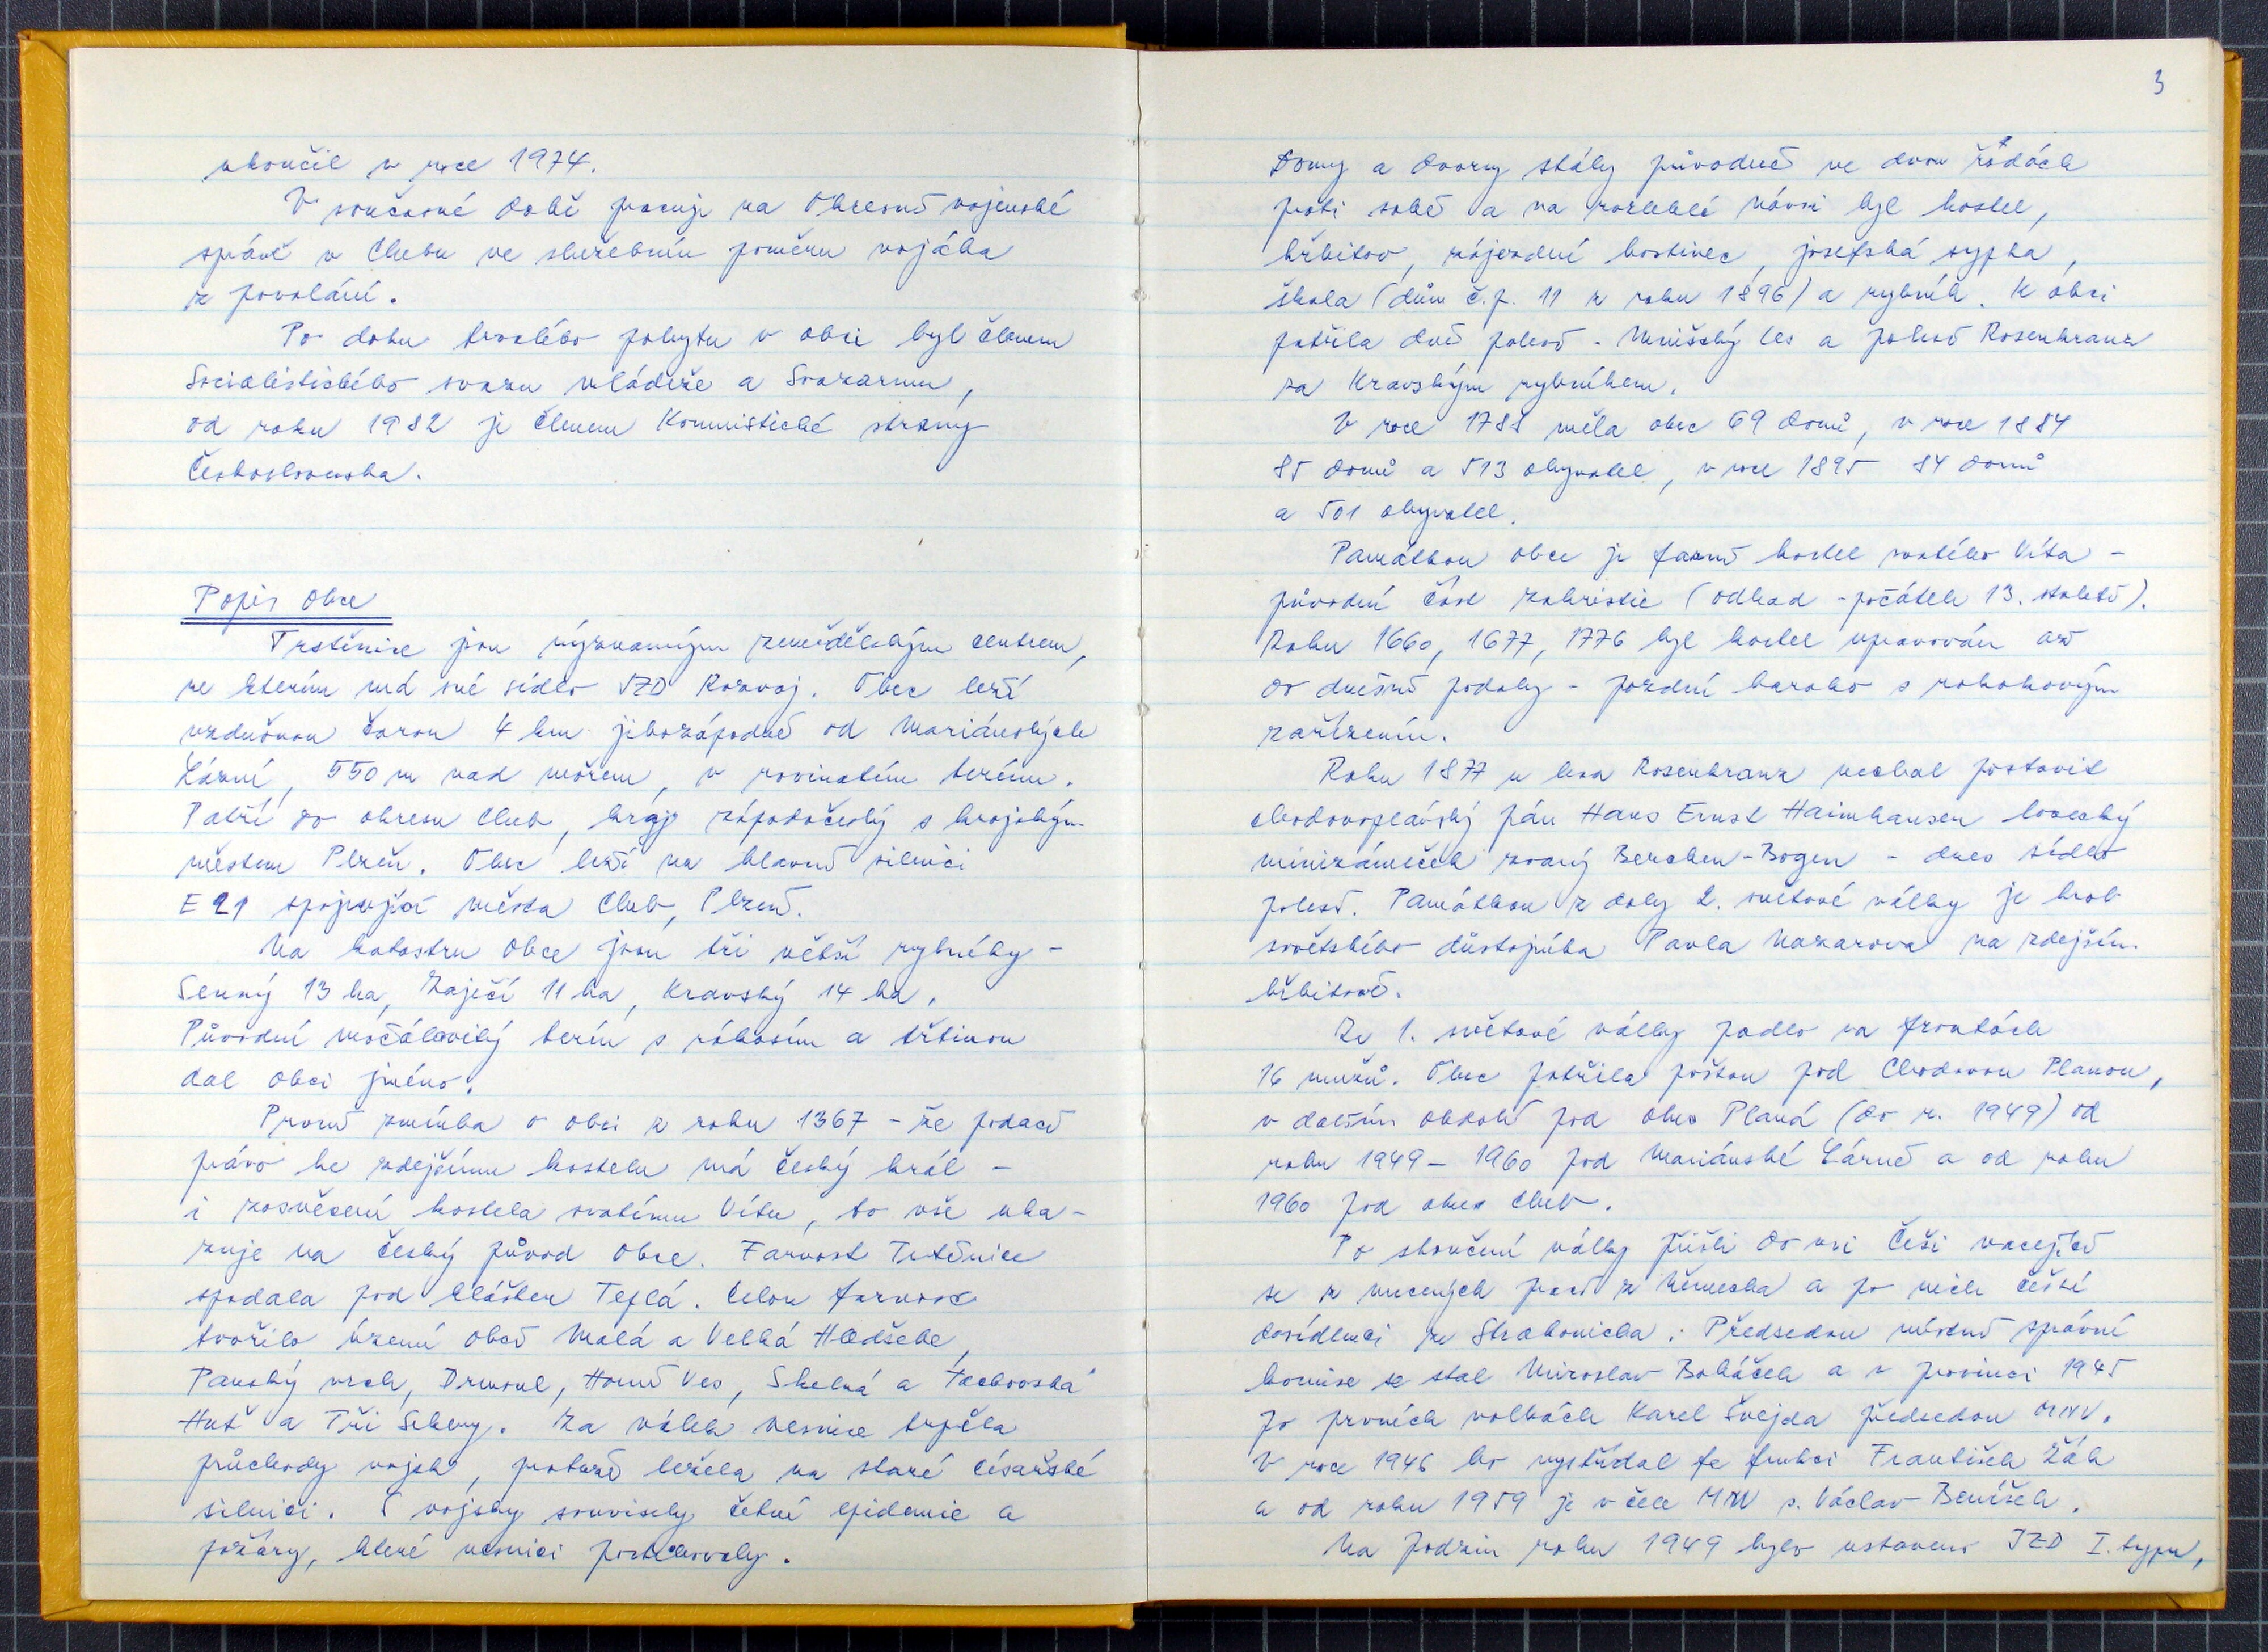 ukončil v roce 1974.
V současné době pracuje na Okresní vojenské
správě v Chebu ve služebním poměru vojáka
z povolání.
Po dobu trvalého pobytu v obci byl členem
Socialistického svazu mládeže a Svazarmu,
od roku 1982 je členem Komunistické strany
Československa.
Popis obce
Trstěnice jsou významným zemědělským centrem,
ve kterém má své sídlo JZD Rozvoj. Obec leží
vzdušnou čarou 4 km jihozápadně od Mariánských
Lázní, 550 m nad mořem, v rovinatém terénu.
Patří do okresu Cheb, kraje západočeský s krajským
městem Plzeň. Obec leží na hlavní silnici
E 21 spojující města Cheb, Plzeň.
Na katastru obce jsou tři větší rybníky -
Senný 13 ha, Zaječí 11 ha, Kravský 14 ha.
Původní močálovitý terén s rákosím a třtinou
dal obci jméno.
První zmínka o obci z roku 1367 - že podací
právo ke zdejšímu kostelu má český král -
i zasvěcení kostela svatému Vítu, to vše uka-
zuje na český původ obce. Farnost Trstěnice
spadala pod klášter Teplá. Celou farnost
tvořilo území obcí Malá a Velká Hleďsebe,
Panský vrch, Drmoul, Horní Ves, Skelná a Tachovská
Huť a Tři Sekery. Za válek vesnice trpěla
průchody vojsk, protože ležela na staré císařské
silnici. S vojsky souvisely četné epidemie a
požáry, které vesnici postihovaly.
3
Domy a dvory stály původně ve dvou řadách
proti sobě a na rozlehlé návsi byl kostel,
hřbitov, zájezdní hostinec, josefská sypka,
škola (dům č.p. 11 z roku 1896) a rybník. K obci
patřila dvě polesí - Mnišský les a polesí Rosenkranz
za Kravským rybníkem.
V roce 1788 měla obec 69 domů, v roce 1884
85 domů a 513 obyvatel, v roce 1895 84 domů
a 501 obyvatel.
Památkou obce je farní kostel svatého Víta -
původní část zakristie (odhad - počátek 13. století).
Roku 1660, 1677, 1776 byl kostel upravován až
do dnešní podoby - pozdní baroko s rokokovým
zařízením.
Roku 1877 u lesa Rosenkranz nechal postavit
chodovoplánský pán Hans Ernst Haimhausen lovecký
minizámeček zvaný Berchen-Bogen - dnes sídlo
polesí. Památkou z doby 2. světové války je hrob
sovětského důstojníka Pavla Nazarova na zdejším
hřbitově.
Za 1. světové války padlo na frontách
16 mužů. Obec patřila poštou pod Chodovou Planou,
v dalším období pod okres Planá (do r. 1949) od
roku 1949 - 1960 pod Mariánské Lázně a od roku
1960 pod okres Cheb.
Po skončení války přišli do vsi Češi vracející
se z nucených prací z Německa a po nich čeští
dosídlenci ze Strakonicka. Předsedou místní správní
komise se stal Miroslav Boháček a v prosinci 1945
po prvních volbách Karel Švejda předsedou MNV.
V roce 1946 ho vystřídal ve funkci František Žák
a od roku 1959 je v čele MNV s. Václav Beníšek.
Na podzim roku 1949 bylo ustaveno JZD I. typu,